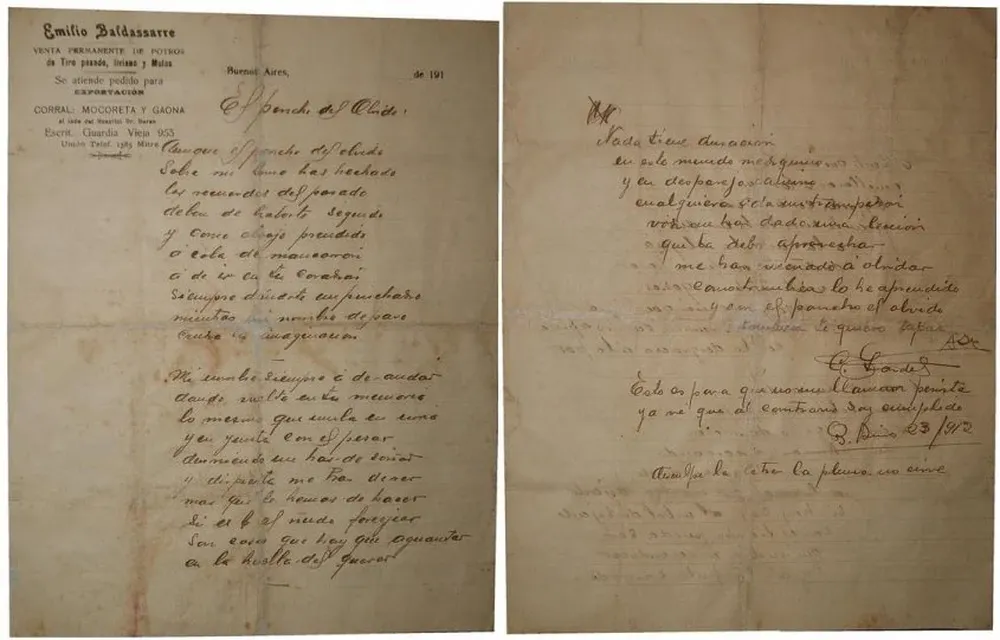 Emilio Baldassarre
VENTA PERMANENTE DE POTROS
de Tiro pesado, liviano y Mulas
Se atiende pedido para
EXPORTACIÓN
CORRAL: MOCORETA Y GAONA
al lado del Hospital Dr. Duran
Escrit. Guardia Vieja 955
Unión Telef. 1385 Mitre
Buenos Aires, de 191
El poncho del Olvido.
Aunque el poncho del olvido
Sobre mi has hechado
los recuerdos del pasado
deben de haberte seguido
y como abrojo prendido
á cola de mancarron
á de ir en tu corazon
siempre
mientras mi nombre de paso
cruce tu imaginacion
Mi nombre siempre á de andar
dando vuelta en tu memoria
lo mesmo que en noria
y en yunta con el pesar
durmiendo me has de soñar
y dispierta me has de ver
mas que le hemos de hacer
si es al ñudo forcejiar
son cosas que hay que aguantar
en la huella del querer
Nada tiene duracion
en este mundo mesquino
y en desparejo camino
cualquiera da un
vos me has dado una leccion
que la debo aprovechar
me has enseñado á olvidar
con lo he aprendido
y con el poncho el olvido
tambien te quiero tapar
C. Gardel
Esto es para que no me llamador
ya ve que al contrario soy cumplido
B. Aires 23/912
disculpe la letra la pluma no sirve